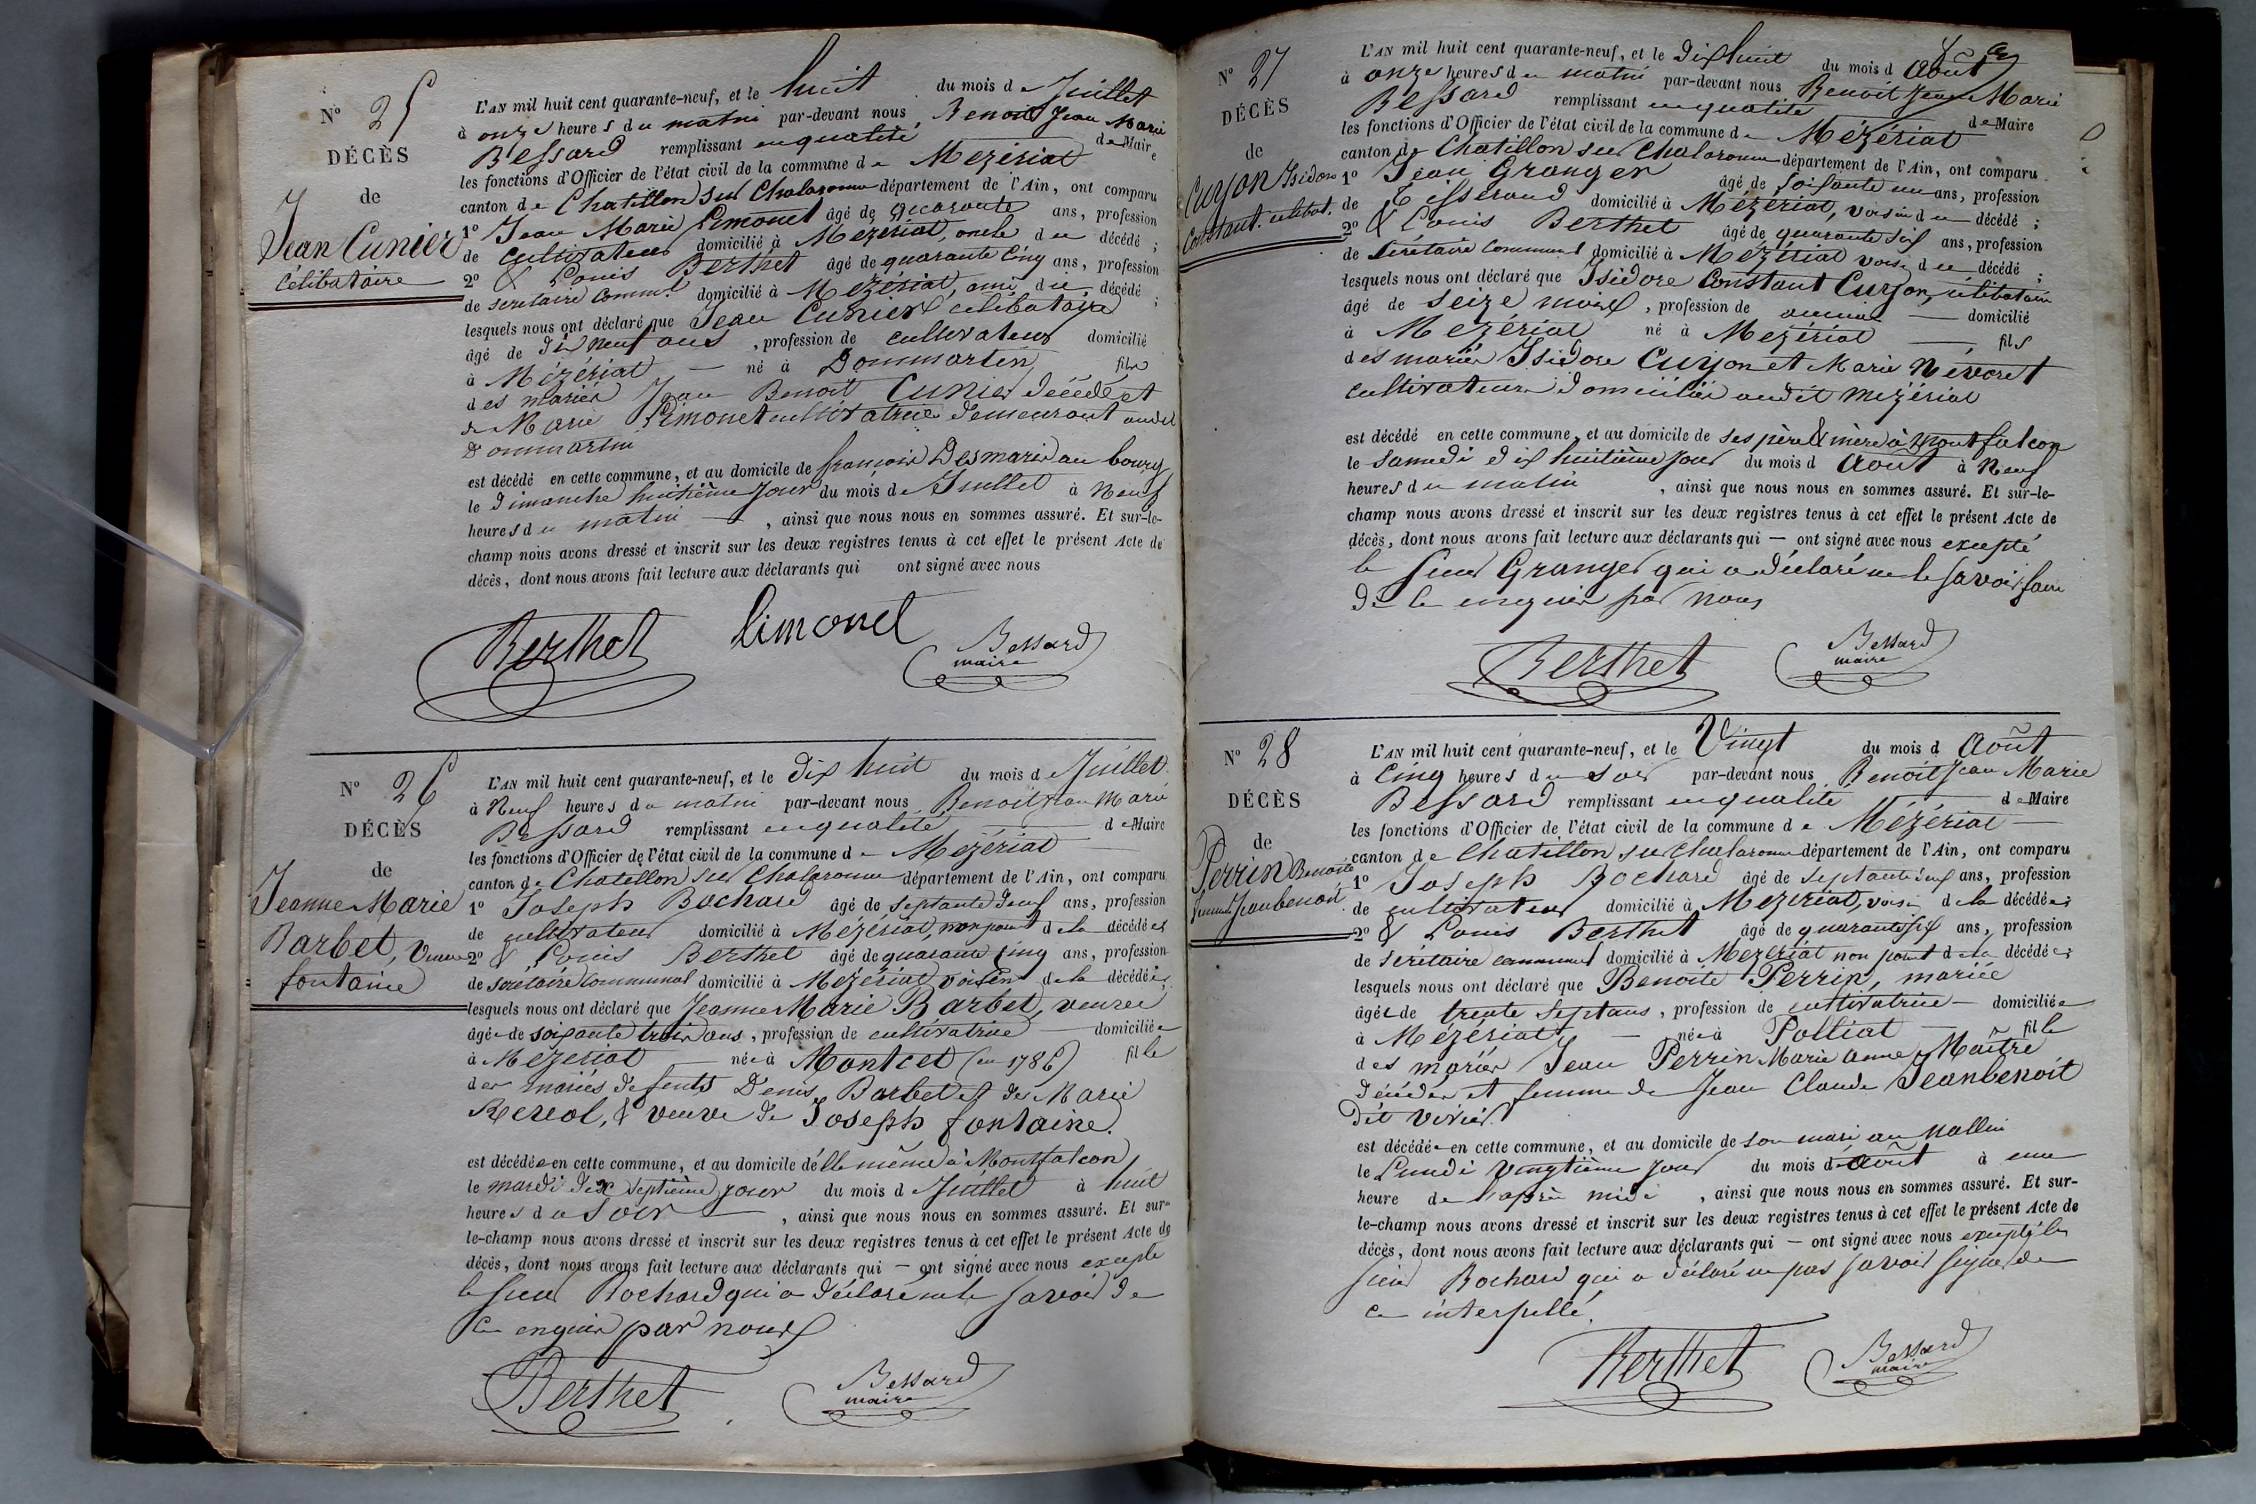 N° 25
DÉCÈS
de
Jean Cunier
célibataire
L'AN mil huit cent quarante-neuf, et le huit du mois de Juillet
à onze heures du matin par-devant nous Benoit Jean Marie
Bessard remplissant en qualité de Maire
les fonctions d'Officier de l'état civil de la commune de Mézériat
canton de Chatillon sur Chalaronne département de l'Ain, ont comparu
1° Jean Marie Limonet âgé de quarante ans, profession
de cultivateur domicilié à Mézériat, oncle du décédé ;
2° & Louis Berthet âgé de quarante cinq ans, profession
de secrétaire comml. domicilié à Mézériat, ami du décédé ;
lesquels nous ont déclaré que Jean Cunier célibataire
âgé de dix neuf ans, profession de cultivateur domicilié
à Mézériat — né à Dommartin fils
des mariés Jean Benoit Cunier décédé et
de Marie Limonet cultivatrice demeurant audit
Dommartin
est décédé en cette commune, et au domicile de françois Desmaris au bourg
le dimanche huitième jour du mois de Juillet à neuf
heures du matin —, ainsi que nous nous en sommes assuré. Et sur-le-
champ nous avons dressé et inscrit sur les deux registres tenus à cet effet le présent Acte de
décès, dont nous avons fait lecture aux déclarants qui ont signé avec nous
Berthet Limonet Bessard
maire
N° 26
DÉCÈS
de
Jeanne Marie
Barbet, Veuve
fontaine
L'AN mil huit cent quarante-neuf, et le dix huit du mois de Juillet
à Neuf heures du matin par-devant nous Benoit Jean Marie
Bessard remplissant en qualité de Maire
les fonctions d'Officier de l'état civil de la commune de Mézériat
canton de Chatillon sur Chalaronne département de l'Ain, ont comparu
1° Joseph Bochard âgé de septante deux ans, profession
de cultivateur domicilié à Mézériat, non parent de la décédée
2° & Louis Berthet âgé de quarante cinq ans, profession
de secrétaire communal domicilié à Mézériat voisin de la décédée ;
lesquels nous ont déclaré que Jeanne Marie Barbet, veuve
âgée de soixante trois ans, profession de cultivatrice — domiciliée
à Mézériat née à Montcet (en 1786) fille
des mariés defunts Denis Barbet et de Marie
Rereol, & veuve de Joseph fontaine.
est décédée en cette commune, et au domicile d'elle même à Montfalcon
le mardi dix septième jour du mois de Juillet à huit
heures du soir —, ainsi que nous nous en sommes assuré. Et sur-
le-champ nous avons dressé et inscrit sur les deux registres tenus à cet effet le présent Acte de
décès, dont nous avons fait lecture aux déclarants qui — ont signé avec nous excepté
le sieur Bochard qui a déclaré ne le savoir de
ce enquis par nous
Berthet Bessard
maire
N° 27
DÉCÈS
de
Curjon Isidore
Constant. célibat.
L'AN mil huit cent quarante-neuf, et le dix huit du mois d Août
à onze heures du matin par-devant nous Benoit Jean Marie
Bessard remplissant en qualité de Maire
les fonctions d'Officier de l'état civil de la commune de Mézériat
canton de Chatillon sur Chalaronne département de l'Ain, ont comparu
1° Jean Granger âgé de soixante un ans, profession
de Tisserand domicilié à Mézériat, voisin du décédé ;
2° & Louis Berthet âgé de quarante six ans, profession
de secrétaire communal domicilié à Mézériat voisin du décédé ;
lesquels nous ont déclaré que Isidore Constant Curjon, célibataire
âgé de seize mois, profession de aucune — domicilié
à Mézériat né à Mézériat — fils
des mariés Isidore Curjon et Marie Névoret
cultivateurs domiciliés audit Mézériat
est décédé en cette commune, et au domicile de ses père & mère à Montfalcon
le samedi dix huitième jour du mois d Août à Neuf
heures du matin, ainsi que nous nous en sommes assuré. Et sur-le-
champ nous avons dressé et inscrit sur les deux registres tenus à cet effet le présent Acte de
décès, dont nous avons fait lecture aux déclarants qui — ont signé avec nous excepté
le sieur Granger qui a déclaré ne le savoir faire
de le enquis par nous
Berthet Bessard
maire
N° 28
DÉCÈS
de
Perrin Benoite
femme Jeanbenoit
L'AN mil huit cent quarante-neuf, et le Vingt du mois d Août
à Cinq heures du soir par-devant nous Benoit Jean Marie
Bessard remplissant en qualité de Maire
les fonctions d'Officier de l'état civil de la commune de Mézériat —
canton de Chatillon sur Chalaronne département de l'Ain, ont comparu
1° Joseph Bochard âgé de septante deux ans, profession
de cultivateur domicilié à Mézériat, voisin de la décédée ;
2° & Louis Berthet âgé de quarante six ans, profession
de secrétaire communal domicilié à Mézériat non parent de la décédée ;
lesquels nous ont déclaré que Benoite Perrin, mariée
âgée de trente sept ans, profession de cultivatrice — domiciliée
à Mézériat, — née à Polliat — fille
des mariés Jean Perrin Marie Anne Maître
décédés et femme de Jean Claude Jeanbenoit
dit Vivier
est décédée en cette commune, et au domicile de son mari au
le Lundi vingtième jour du mois d'Août à une
heure de l'après midi, ainsi que nous nous en sommes assuré. Et sur-
le-champ nous avons dressé et inscrit sur les deux registres tenus à cet effet le présent Acte de
décès, dont nous avons fait lecture aux déclarants qui — ont signé avec nous excepté le
sieur Bochard qui a déclaré ne pas savoir signer de
ce interpellé.
Berthet Bessard
maire